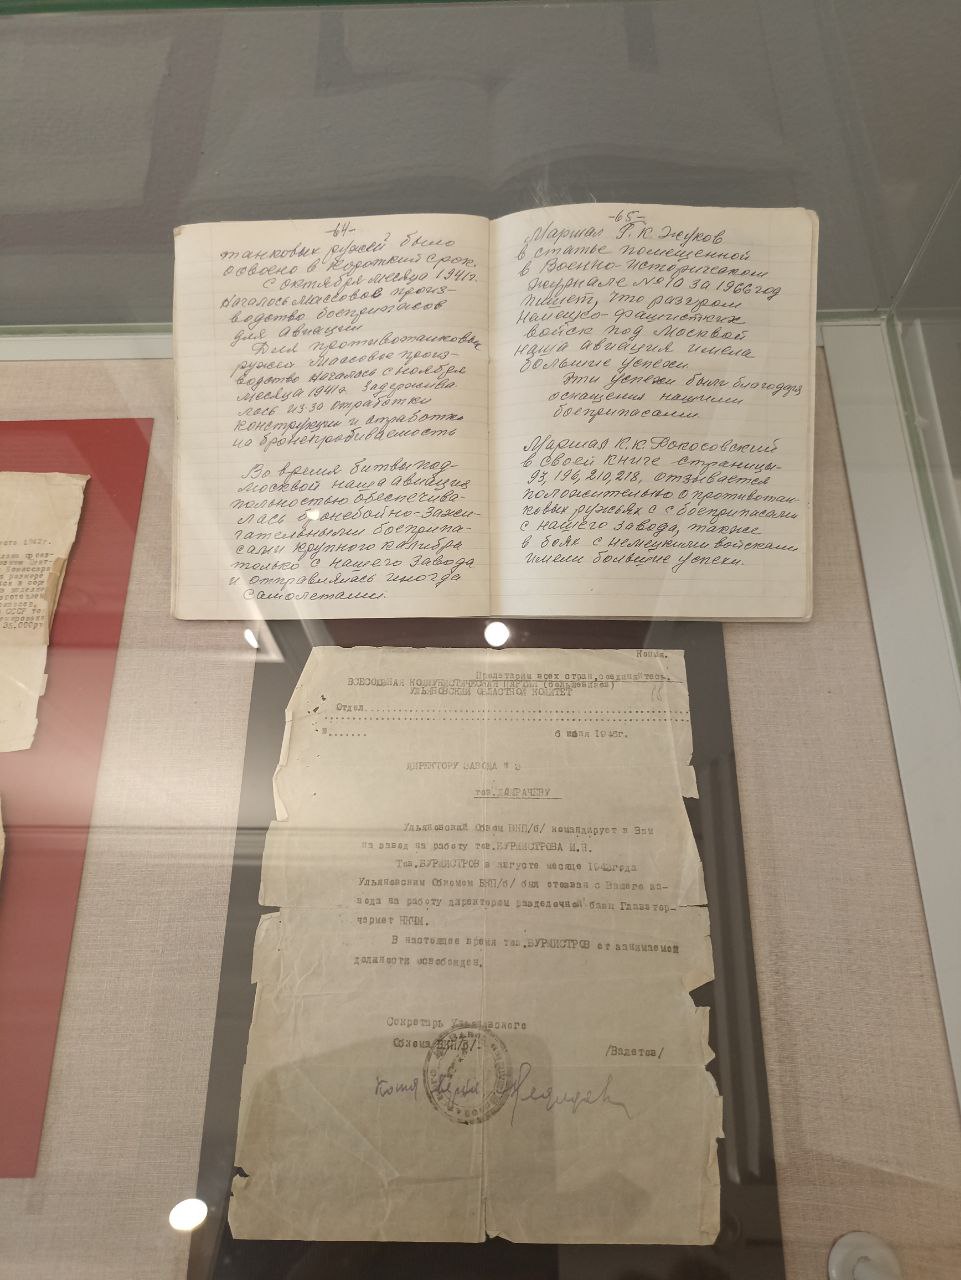 -64-
танковых ружей было
освоено в короткий срок.
С октября месяца 1941г.
началось массовое произ-
водство боеприпасов
для авиации
Для противотанковых
ружей массовое произ-
водство началось с ноября
месяца 1941г. Задержива
лось из-за отработки
конструкции и отработки
на бронепробиваемость
Во время битвы под-
Москвой наша авиация
полностью обеспечива-
лась бронебойно-зажи-
гательными боеприпа-
сами крупного калибра
только с нашего завода
и отправлялась иногда
самолетами.
-65-
Маршал Г.К Жуков
в статье помещенной
в Военно-историческом
журнале №10 за 1966 год
пишет, что разгром
немецко-фашистких
войск под Москвой
наша авиация имела
большие успехи.
Эти успехи были благодаря
оснащения нашими
боеприпасами.
Маршал К.К. Рокосовский
в своей книге-страницы-
93, 196, 210, 218, отзывается
положительно о противотан-
ковых ружьях с с боеприпасами
с нашего завода, также
в боях с немецкими войсками
имели большие успехи.
1942г.
СССР
35.000р
Копия.
Пролетарии всех стран, соединяйтесь.
ВСЕСОЮЗНАЯ КОММУНИСТИЧЕСКАЯ ПАРТИЯ (большевиков)
УЛЬЯНОВСКИЙ ОБЛАСТНОЙ КОМИТЕТ
Отдел
6 194 г.
ДИРЕКТОРУ ЗАВОДА № 3
тов.
Ульяновский Обком ВКП/б/ командирует к Вам
на завод на работу тов.БУРМИСТРОВА И.Н.
Тов.БУРМИСТРОВ в августе месяце 1943года
Ульяновским Обкомом ВКП/б/ был отозван с Вашего за-
вода на работу директором разделочной базы Главвтор-
чермет НКЧМ.
В настоящее время тов.БУРМИСТРОВ от занимаемой
должности освобожден.
Секретарь Ульяновского
Обкома ВКП/б/-
Копия верна